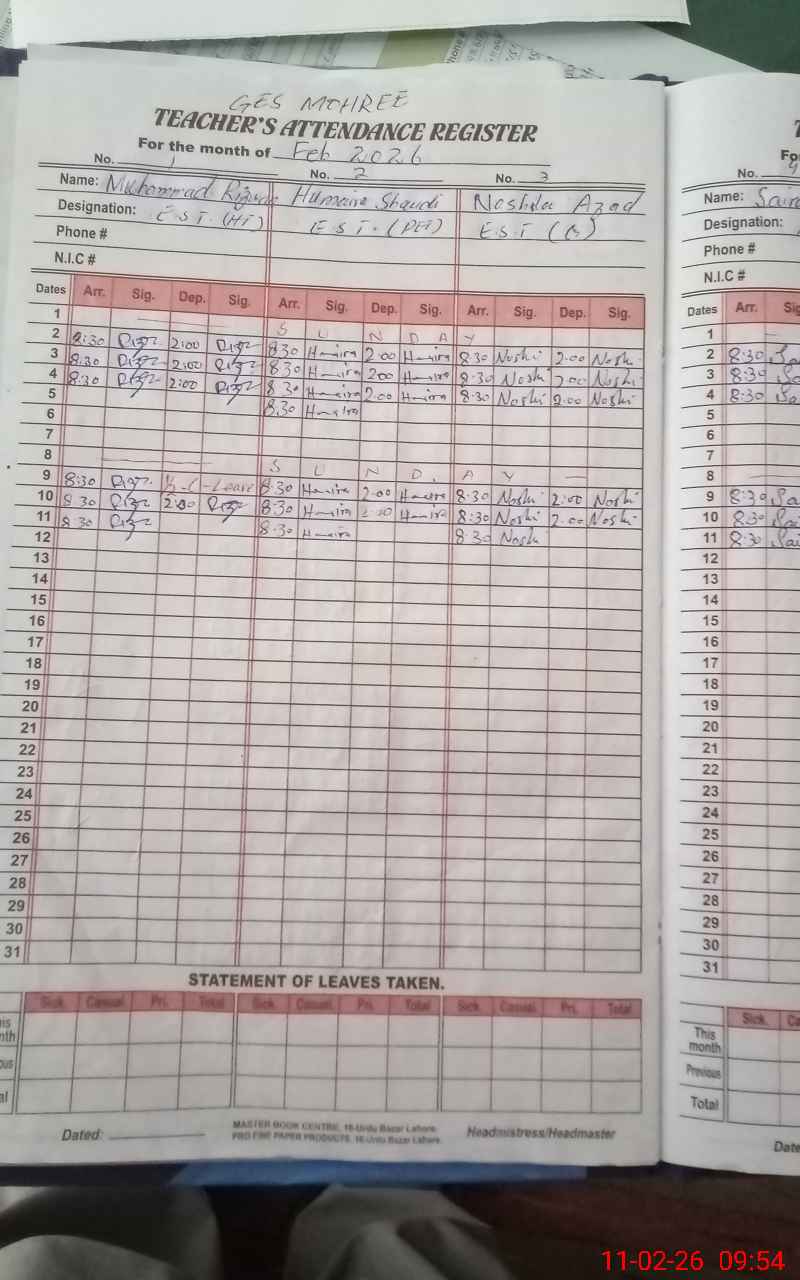 GES MOHREE
TEACHER'S ATTENDANCE REGISTER
For the month of Feb 2026
No. 1 No. 2 No. 3
Name: Muhammad Rizwan Humaira Shaudi Noshila Azad
Designation: E.S.T. (HT) E S T. (PET) E.S.T (G)
Phone #
N.I.C #
Dates Arr. Sig. Dep. Sig. Arr. Sig. Dep. Sig. Arr. Sig. Dep. Sig.
1 S U N D A Y
2 8:30 2:00 8:30 Humaira 2:00 Humaira 8:30 Noshi 2:00 Noshi
3 8:30 2:00 8:30 Humaira 2:00 Humaira 8:30 Noshi 2:00 Noshi
4 8:30 2:00 8:30 Humaira 2:00 Humaira 8:30 Noshi 2:00 Noshi
5 8:30 Humaira
6
7
8 S U N D A Y
9 8:30 ½-C-Leave 8:30 Humaira 2:00 Humaira 8:30 Noshi 2:00 Noshi
10 8:30 2:00 8:30 Humaira 2:00 Humaira 8:30 Noshi 2:00 Noshi
11 8:30 8:30 Humaira 8:30 Noshi
12
13
14
15
16
17
18
19
20
21
22
23
24
25
26
27
28
29
30
31
STATEMENT OF LEAVES TAKEN.
Sick. Casual. Pri. Total Sick. Casual. Pri. Total Sick. Casual. Pri. Total
Dated:
MASTER BOOK CENTRE, 16-Urdu Bazar Lahore.
PRO FINE PAPER PRODUCTS, 16-Urdu Bazar Lahore.
Headmistress/Headmaster
No. 4
Name:
Designation:
Phone #
N.I.C #
Dates Arr.
1
2 8:30
3 8:30
4 8:30
5
6
7
8
9 8:30
10 8:30
11 8:30
12
13
14
15
16
17
18
19
20
21
22
23
24
25
26
27
28
29
30
31
Sick.
This month
Previous
Total
11-02-26 09:54